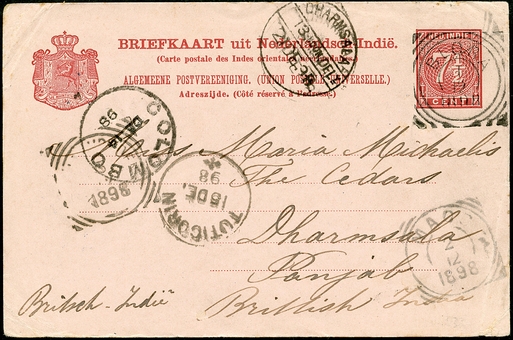 BRIEFKAART uit Nederlandsch-Indië.
(Carte postale des Indes orientales néerlandaises.)
ALGEMEENE POSTVEREENIGING. (UNION POSTALE UNIVERSELLE.)
Adreszijde. (Côté réservé à l'adresse.)
NED. INDIË
7½
CENT
DHARMSALA
COLOMBO
98
1898
TUTICORIN
15 DE.
98
12
1898
Miss Maria Michaelis
The Cedars
Dharmsala
Panjab
Britsch-Indië
Brittish India